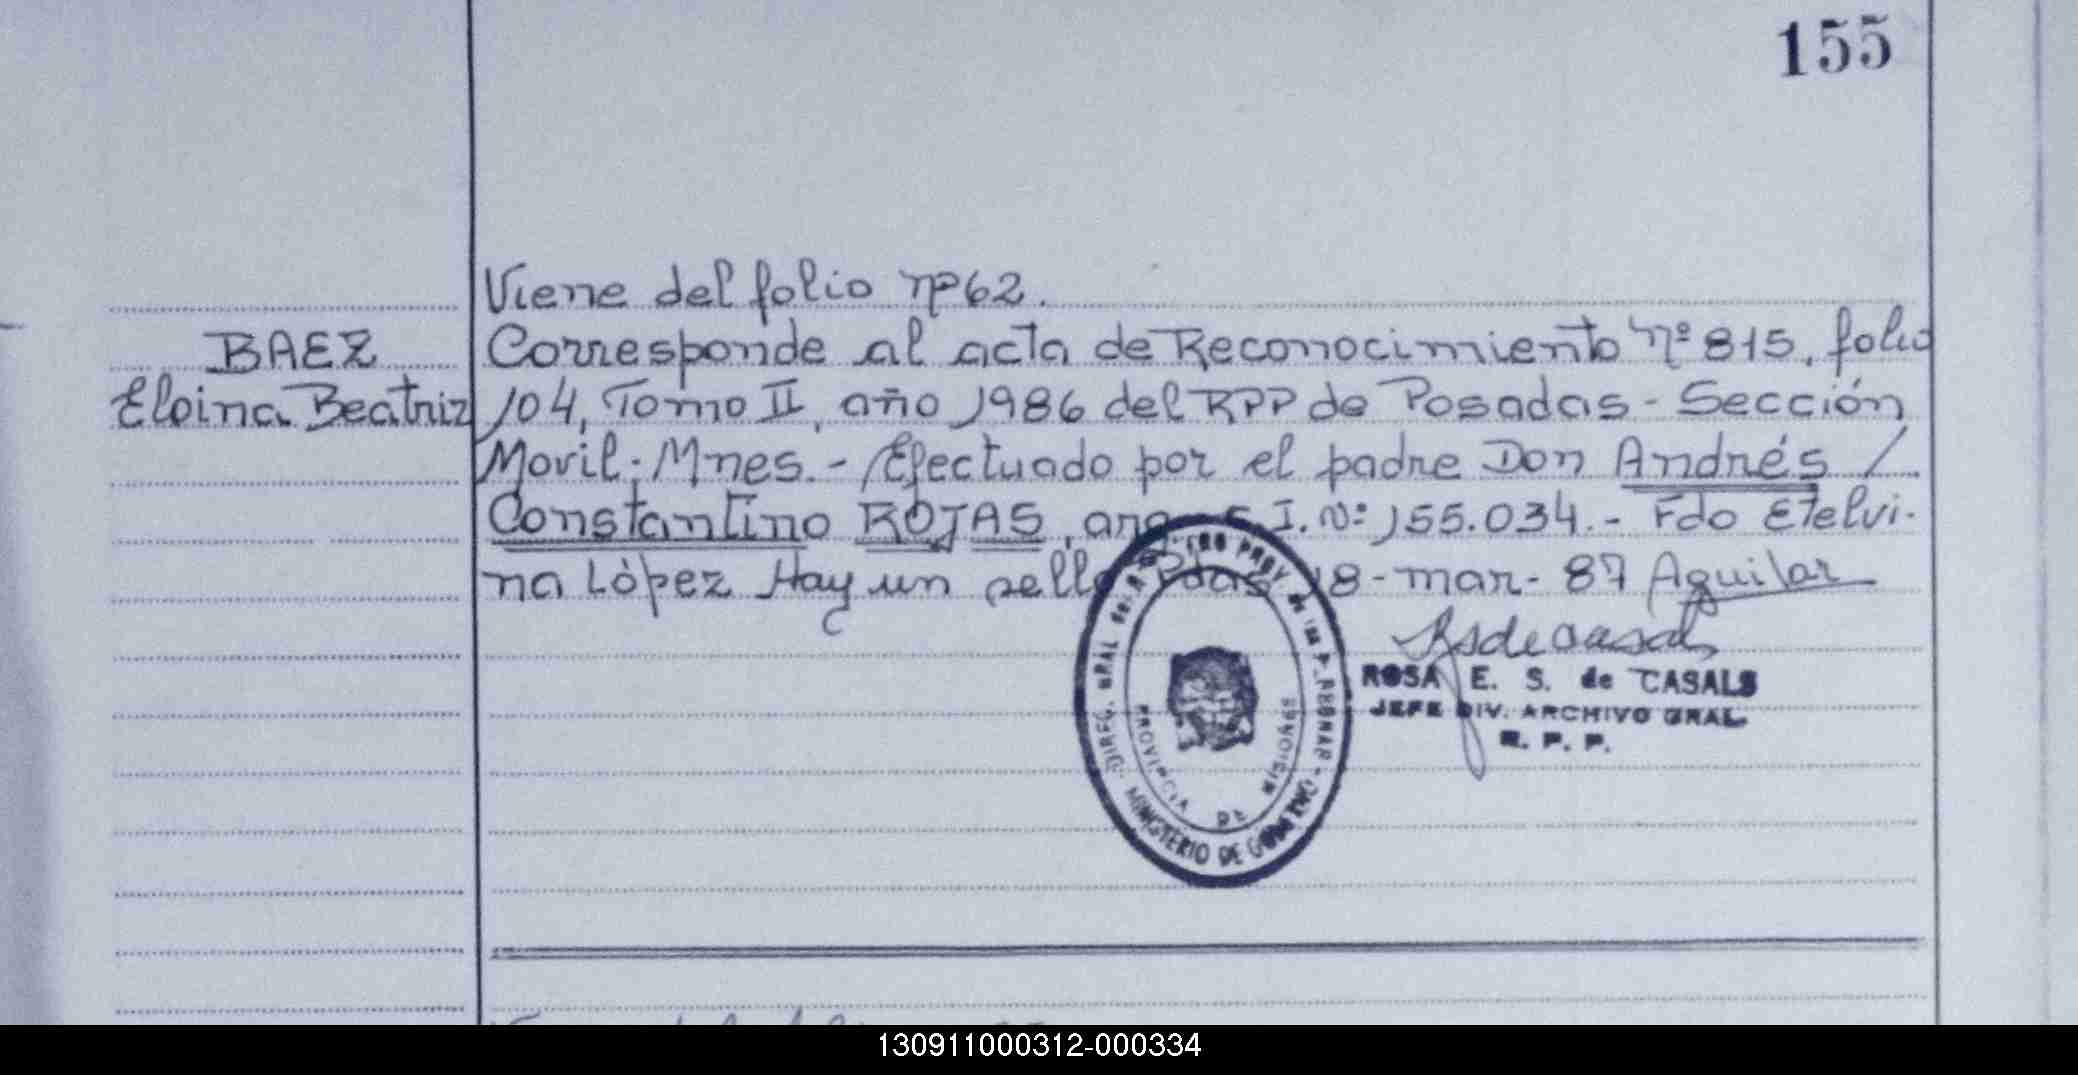 155
Viene del folio nº 62.
BAEZ
Eloina Beatriz
Corresponde al acta de Reconocimiento nº 815, folio
104, Tomo II, año 1986 del RPP de Posadas - Sección
Movil - Mnes. - Efectuado por el padre Don Andrés /
Constantino ROJAS, arg. I. Nº 155.034.- Fdo Etelvi-
na López Hay un sello Pdas 18 - mar - 87 Aguilar
ROSA E. S. de CASALS
JEFE DIV. ARCHIVO GRAL.
R. P. P.
PROVINCIA DE MISIONES
MINISTERIO DE GOBIERNO
130911000312-000334